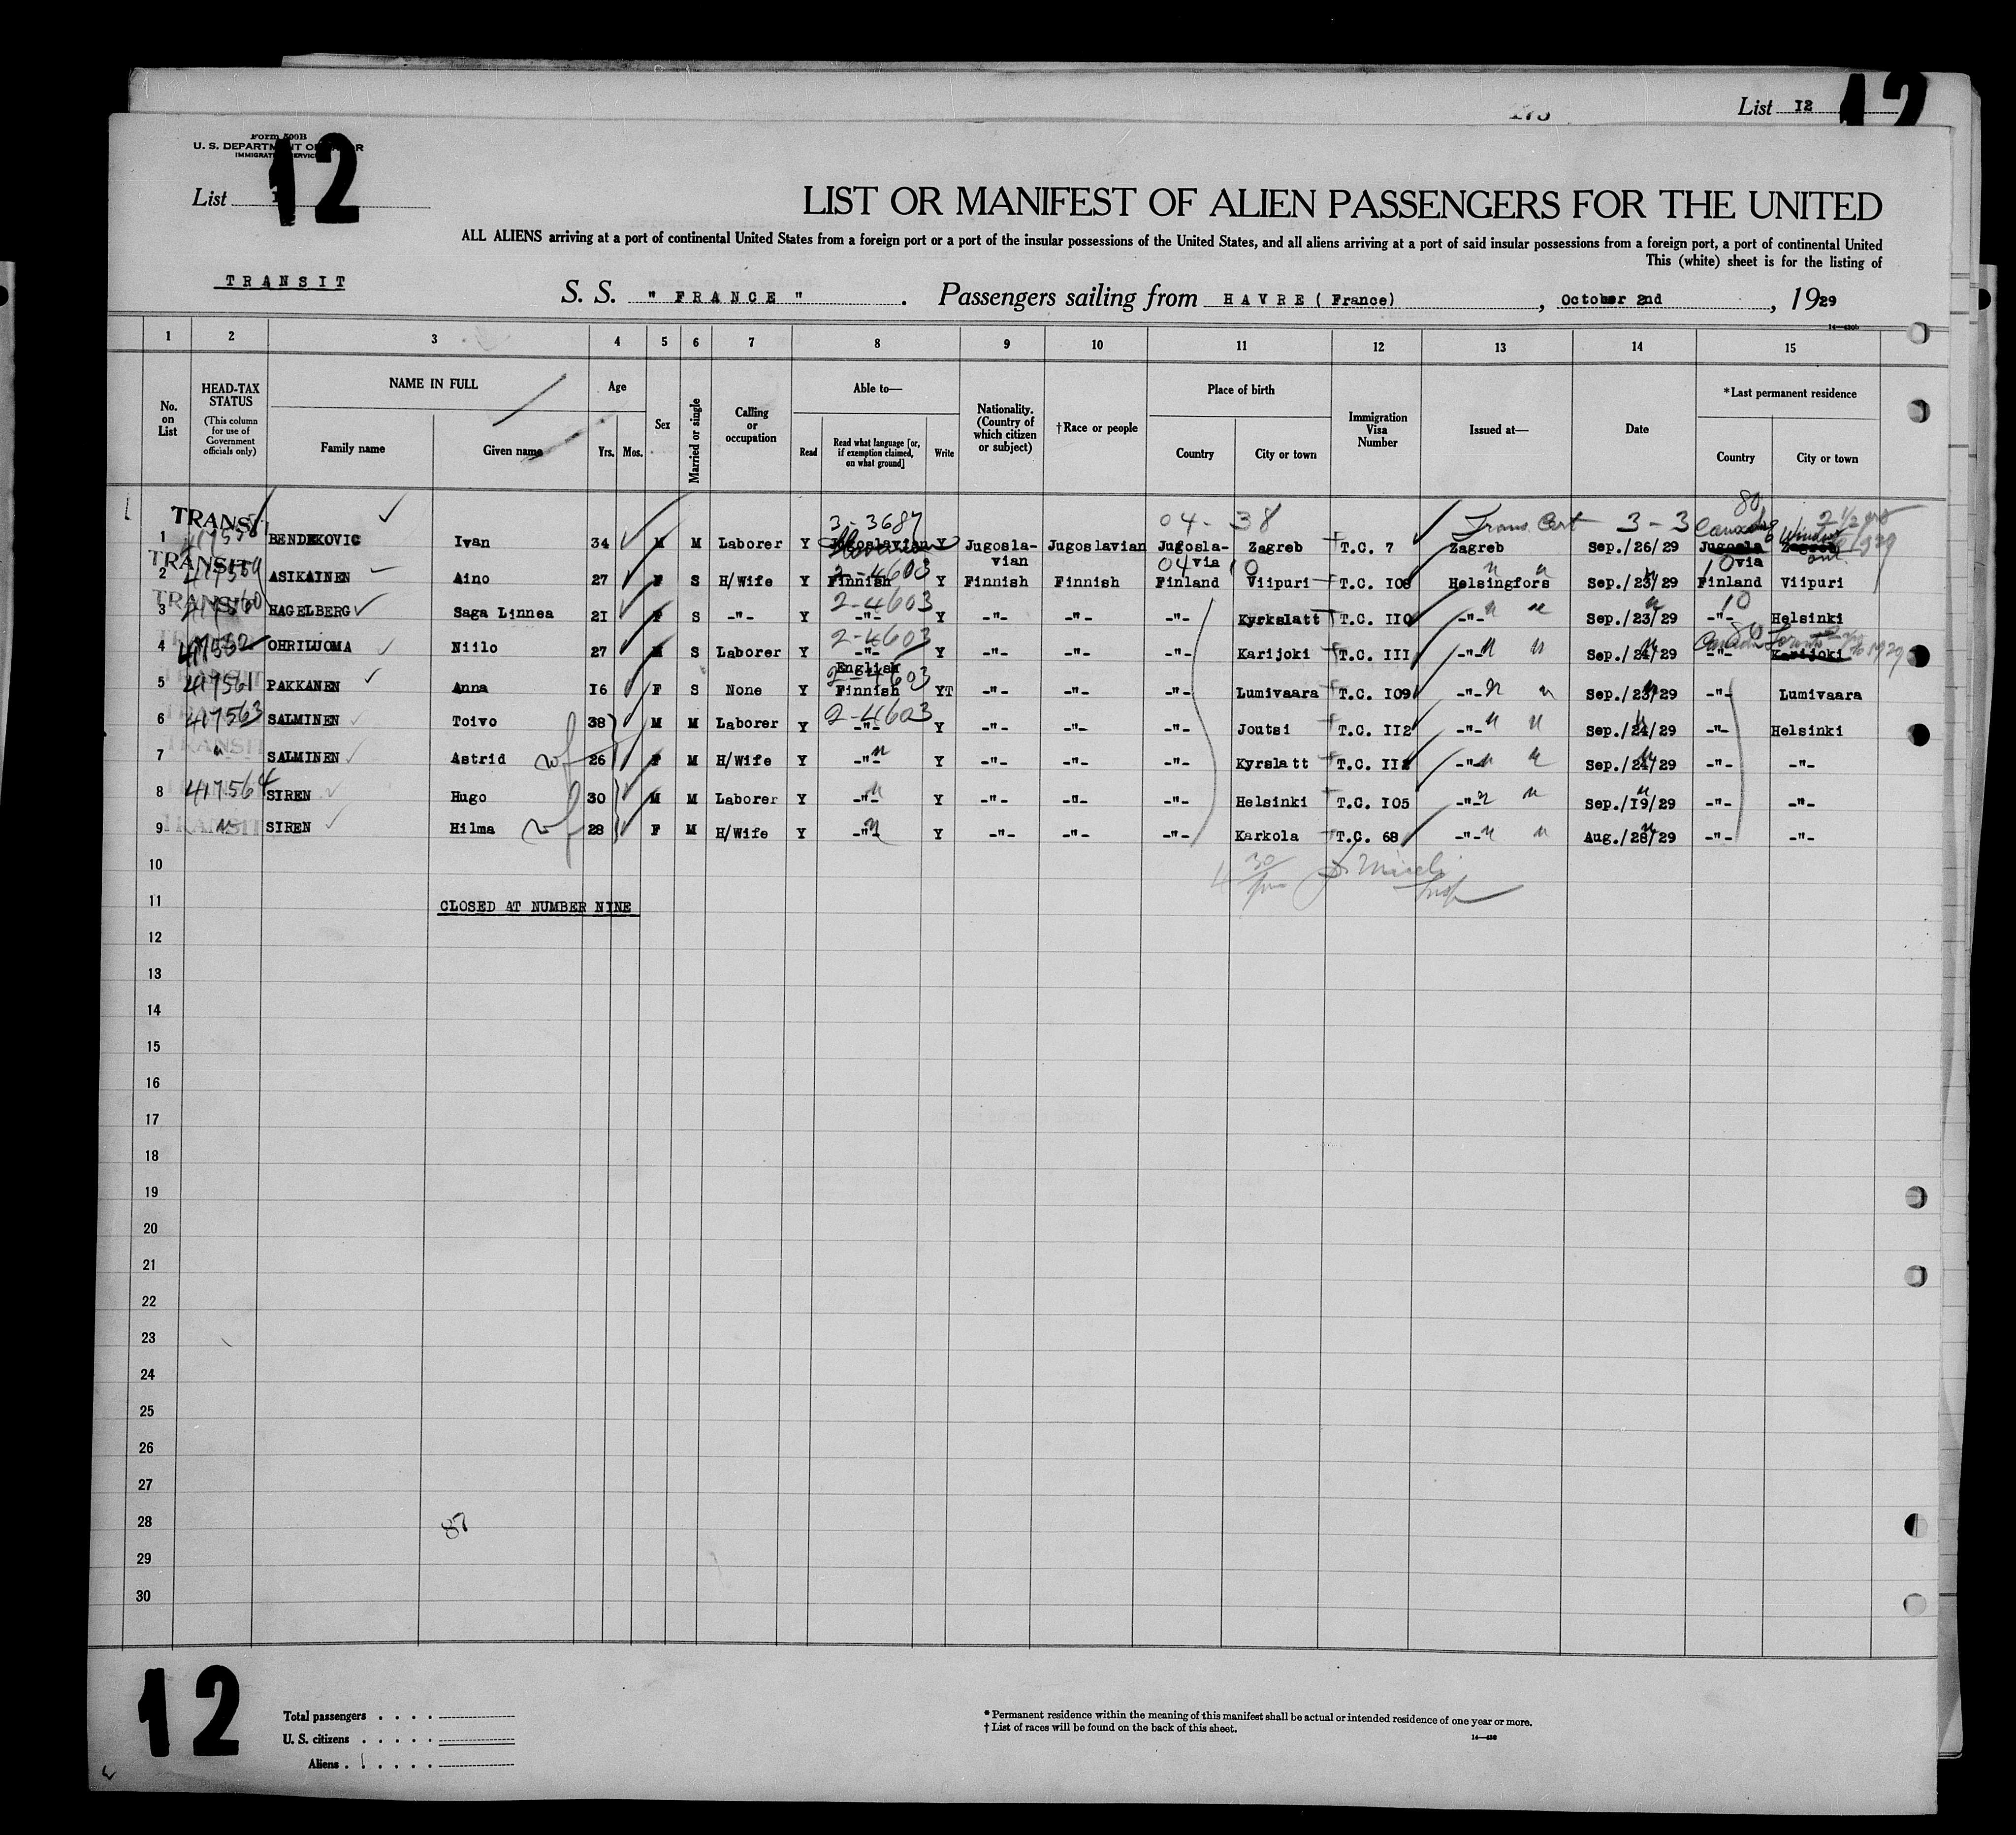 List 12
12
Form 500B
U. S. DEPARTMENT OF LABOR
IMMIGRATION SERVICE
12
List
LIST OR MANIFEST OF ALIEN PASSENGERS FOR THE UNITED
ALL ALIENS arriving at a port of continental United States from a foreign port or a port of the insular possessions of the United States, and all aliens arriving at a port of said insular possessions from a foreign port, a port of continental United
This (white) sheet is for the listing of
TRANSIT
S. S. " FRANCE " . Passengers sailing from HAVRE (France) , October 2nd , 1929
1 2 3 4 5 6 7 8 9 10 11 12 13 14 15
No. on List
HEAD-TAX STATUS (This column for use of Government officials only)
NAME IN FULL
Family name Given name
Age
Yrs. Mos.
Sex
Married or single
Calling or occupation
Able to—
Read Read what language [or, if exemption claimed, on what ground] Write
Nationality. (Country of which citizen or subject)
†Race or people
Place of birth
Country City or town
Immigration Visa Number
Issued at—
Date
*Last permanent residence
Country City or town
TRANSIT 3-3687 04-38 Trans Cert 3-3 80 2 1/2 yrs
1 417558 BENDEKOVIC Ivan 34 M M Laborer Y Jugoslavian Y Jugosla-vian Jugoslavian Jugosla-via Zagreb T.C. 7 Zagreb Sep./26/29 Canada Jugosla-via Windsor Zagreb ont.
TRANSIT 2-4603 04 10 10
2 417559 ASIKAINEN Aino 27 F S H/Wife Y Finnish Y Finnish Finnish Finland Viipuri T.C. 108 Helsingfors Sep./23/29 Finland Viipuri
TRANSIT 2-4603 10
3 417560 HAGELBERG Saga Linnea 21 F S -"- Y -"- Y -"- -"- -"- Kyrkslatt T.C. 110 -"- Sep./23/29 -"- Helsinki
2-4603 80
4 417562 OHRILUOMA Niilo 27 M S Laborer Y -"- Y -"- -"- -"- Karijoki T.C. 111 -"- Sep./24/29 Canada -"- Toronto Karijoki 1929
TRANSIT English 2-4603
5 417561 PAKKANEN Anna 16 F S None Y Finnish YT -"- -"- -"- Lumivaara T.C. 109 -"- Sep./23/29 -"- Lumivaara
TRANSIT 2-4603
6 417563 SALMINEN Toivo 38 M M Laborer Y -"- Y -"- -"- -"- Joutsi T.C. 112 -"- Sep./24/29 -"- Helsinki
TRANSIT
7 " SALMINEN Astrid wf 26 F M H/Wife Y -"- Y -"- -"- -"- Kyrslatt T.C. 112 -"- Sep./24/29 -"- -"-
8 417564 SIREN Hugo 30 M M Laborer Y -"- Y -"- -"- -"- Helsinki T.C. 105 -"- Sep./19/29 -"- -"-
TRANSIT
9 " SIREN Hilma wf 28 F M H/Wife Y -"- Y -"- -"- -"- Karkola T.C. 68 -"- Aug./28/29 -"- -"-
10
4 30/pm Insp
11 CLOSED AT NUMBER NINE
12
13
14
15
16
17
18
19
20
21
22
23
24
25
26
27
28 87
29
30
12
Total passengers . . . .
U. S. citizens . . . . .
Aliens . . . . . .
* Permanent residence within the meaning of this manifest shall be actual or intended residence of one year or more.
† List of races will be found on the back of this sheet.
14—430